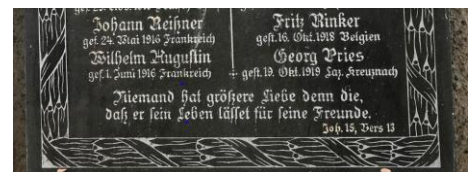 Johann Reißner
gef. 24. Mai 1916 Frankreich
Wilhelm Augustin
gef. 1. Juni 1916 Frankreich
Fritz Rinker
gest. 16. Okt. 1918 Belgien
Georg Pries
gest. 19. Okt. 1919 Laz. Kreuznach
Niemand hat größere Liebe denn die,
daß er sein Leben lässet für seine Freunde.
Joh. 15, Vers 13